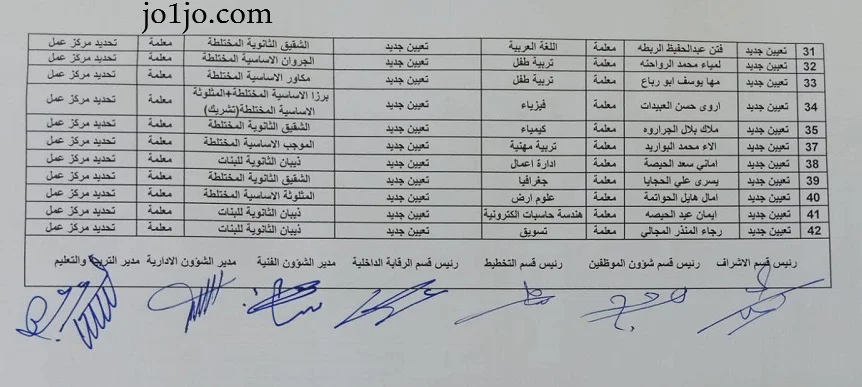 jo1jo.com
31 تعيين جديد فتن عبدالحفيظ الربطه معلمة اللغة العربية تعيين جديد الشقيق الثانوية المختلطة معلمة تحديد مركز عمل
32 تعيين جديد لمياء محمد الرواحنه معلمة تربية طفل تعيين جديد الجروان الاساسية المختلطة معلمة تحديد مركز عمل
33 تعيين جديد مها يوسف ابو رباع معلمة تربية طفل تعيين جديد مكاور الاساسية المختلطة معلمة تحديد مركز عمل
34 تعيين جديد اروى حسن العبيدات معلمة فيزياء تعيين جديد برزا الاساسية المختلطة+المثلوثة الاساسية المختلطة(تشريك) معلمة تحديد مركز عمل
35 تعيين جديد ملاك بلال الجراروه معلمة كيمياء تعيين جديد الشقيق الثانوية المختلطة معلمة تحديد مركز عمل
37 تعيين جديد الاء محمد البواريد معلمة تربية مهنية تعيين جديد الموجب الاساسية المختلطة معلمة تحديد مركز عمل
38 تعيين جديد اماني سعد الحيصة معلمة ادارة اعمال تعيين جديد ذيبان الثانوية للبنات معلمة تحديد مركز عمل
39 تعيين جديد يسرى علي الحجايا معلمة جغرافيا تعيين جديد الشقيق الثانوية المختلطة معلمة تحديد مركز عمل
40 تعيين جديد امال هايل الحواتمة معلمة علوم ارض تعيين جديد المثلوثة الاساسية المختلطة معلمة تحديد مركز عمل
41 تعيين جديد ايمان عيد الحيصه معلمة هندسة حاسبات الكترونية تعيين جديد ذيبان الثانوية للبنات معلمة تحديد مركز عمل
42 تعيين جديد رجاء المنذر المجالي معلمة تسويق تعيين جديد ذيبان الثانوية للبنات معلمة تحديد مركز عمل
رئيس قسم الاشراف رئيس قسم شؤون الموظفين رئيس قسم التخطيط رئيس قسم الرقابة الداخلية مدير الشؤون الفنية مدير الشؤون الادارية مدير التربية والتعليم